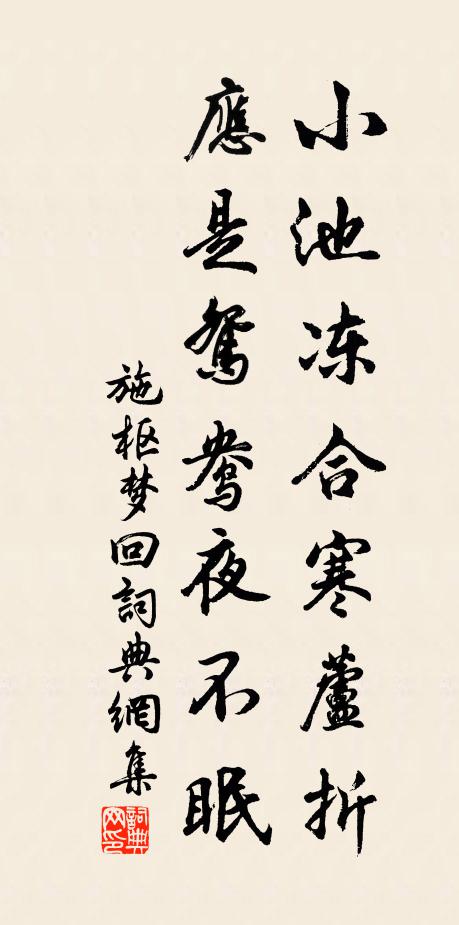 小池冻合寒蘆折
應是鴛鴦夜不眠
施枢梦回詞典網集
詞典网印